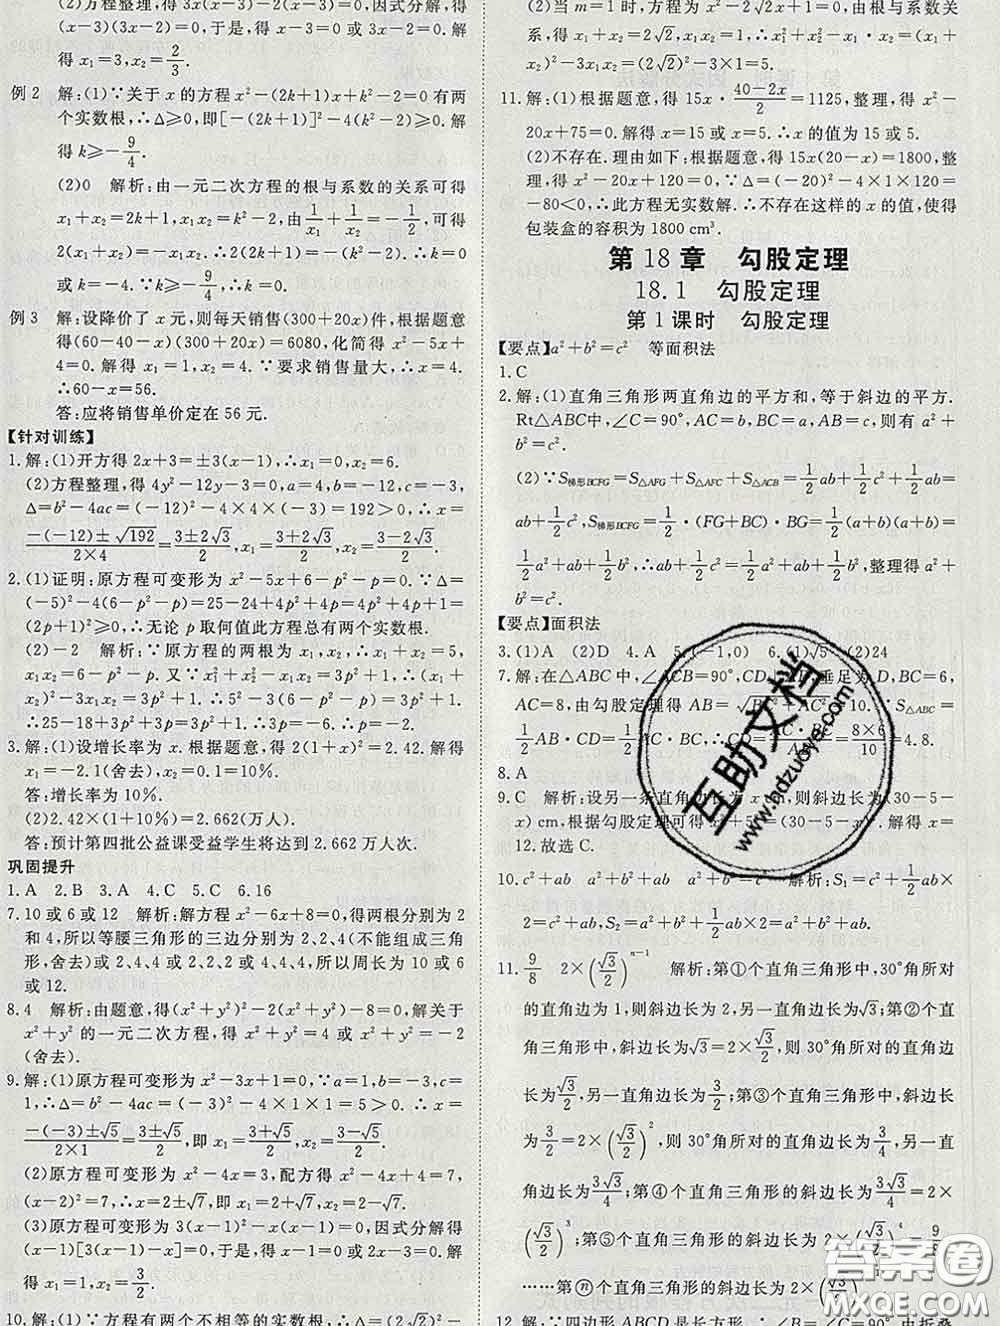 (2)方程整理,得 3x(x-3)-2(x-3)=0,因式分解,得
(x-3)(3x-2)=0,于是,得 x-3=0 或 3x-2=0. 解
得 x₁=3,x₂=2/3.
例 2 解:(1)∵关于 x 的方程 x²-(2k+1)x+k²-2=0 有两
个实数根,∴Δ≥0,即[-(2k+1)]²-4(k²-2)≥0. 解
得 k≥-9/4.
(2)0 解析:由一元二次方程的根与系数的关系可得
x₁+x₂=2k+1,x₁x₂=k²-2,由 1/x₁+1/x₂=-1/2,可得
2(x₁+x₂)=-x₁x₂,∴2(2k+1)=-(k²-2),∴k=0
或 k=-4. ∵k≥-9/4,∴k=0.
例 3 解:设降价了 x 元,则每天销售(300+20x)件,根据题意
得(60-40-x)(300+20x)=6080,化简得 x²-5x+
4=0. 解得 x₁=1,x₂=4. ∵要求销售量大,∴x=4.
∴60-x=56.
答:应将销售单价定在 56 元.
【针对训练】
1.解:(1)开方得 2x+3=±3(x-1),∴x₁=0,x₂=6.
(2)方程整理,得 4y²-12y-3=0,a=4,b=-12,c=-3,
Δ=b²-4ac=(-12)²-4×4×(-3)=192>0,∴x=
(-(-12)±√192)/(2×4)=(3±2√3)/2,x₁=(3+2√3)/2,x₂=(3-2√3)/2.
2.(1)证明:原方程可变形为 x²-5x+6-p²-p=0. ∵Δ=
(-5)²-4(6-p²-p)=25-24+4p²+4p=4p²+4p+1=
(2p+1)²≥0,∴无论 p 取何值此方程总有两个实数根.
(2)-2 解析:∵原方程的两根为 x₁,x₂,∴x₁+x₂=5,
x₁x₂=6-p²-p. 又∵x₁²+x₂²-x₁x₂=3p²+1,∴(x₁+
x₂)²-3x₁x₂=3p²+1,∴5²-3(6-p²-p)=3p²+1,
∴25-18+3p²+3p=3p²+1,∴3p=-6,∴p=-2.
3.解:(1)设增长率为 x. 根据题意,得 2(1+x)²=2.42. 解得
x₁=-2.1(舍去),x₂=0.1=10%.
答:增长率为 10%.
(2)2.42×(1+10%)=2.662(万人).
答:预计第四批公益课受益学生将达到 2.662 万人次.
巩固提升
1.A 2.B 3.A 4.C 5.C 6.16
7.10 或 6 或 12 解析:解方程 x²-6x+8=0,得两根分别为 2
和 4,所以等腰三角形的三边分别为 2、2、4(不能组成三角
形,舍去)或 2、4、4 或 2、2、2 或 4、4、4,所以周长为 10 或 6
或 12.
8.4 解析:由题意,得(x²+y²)²-2(x²+y²)-8=0,解关于
x²+y² 的一元二次方程,得 x²+y²=4 或 x²+y²=-2
(舍去).
9.解:(1)原方程可变形为 x²-3x+1=0,∵a=1,b=-3,c=
1,∴Δ=b²-4ac=(-3)²-4×1×1=5>0,∴x=
(-(-3)±√5)/(2×1)=(3±√5)/2,即 x₁=(3+√5)/2,x₂=(3-√5)/2.
(2)原方程可变形为 x²-4x=3,配方得 x²-4x+4=7,
(x-2)²=7,∴x=2±√7,即 x₁=2+√7,x₂=2-√7.
(3)原方程可变形为 3(x-1)²-x(x-1)=0,因式分解得
(x-1)[3(x-1)-x]=0,于是得 x-1=0 或 2x-3=0. 解
得 x₁=1,x₂=3/2.
10.解:(1)∵方程有两个不相等的实数根,
(2)当 m=1 时,方程为 x²-2√2x+1=0,由根与系数关
系,得 x₁+x₂=2√2,x₁x₂=1,∴x₁²+x₂²-x₁x₂=(x₁+
x₂)²-3x₁x₂=(2√2)²-3×1=5.
11.解:(1)根据题意,得 15x·(40-2x)/2=1125,整理,得 x²-
20x+75=0. 解得 x₁=15,x₂=5. ∴x 的值为 15 或 5.
(2)不存在. 理由如下:根据题意,得 15x(20-x)=1800,整
理,得 x²-20x+120=0. ∵Δ=(-20)²-4×1×120=
-80<0,∴此方程无实数解. ∴不存在这样的 x 的值,使得
包装盒的容积为 1800 cm³.
第 18 章 勾股定理
18.1 勾股定理
第 1 课时 勾股定理
【要点】a²+b²=c² 等面积法
1.C
2.解:(1)直角三角形两直角边的平方和,等于斜边的平方.
Rt△ABC中,∠C=90°,AC=b,BC=a,AB=c,则有 a²+
b²=c².
(2)∵S梯形BCFG=S△AFG+S△AFC+S△ACB=1/2ab+1/2c²+1/2ab=
ab+1/2c²,S梯形BCFG=1/2·(FG+BC)·BG=1/2(a+b)(a+b)=
1/2a²+ab+1/2b². ∴ab+1/2c²=1/2a²+ab+1/2b²,整理得 a²+
b²=c².
【要点】面积法
3.(1)A (2)D 4.A 5.(-1,0) 6.(1)√5 (2)24
7.解:在△ABC 中,∠ACB=90°,CD⊥AB,垂足为 D,BC=6,
AC=8,由勾股定理得 AB=√(BC²+AC²)=10. ∵S△ABC=
1/2AB·CD=1/2AC·BC,∴CD=AC·BC/AB=8×6/10=4.8.
8.A
9.C 解析:设另一条直角边长为 x cm,则斜边长为(30-5-
x) cm,根据勾股定理可得 x²+5²=(30-5-x)². 解得 x=
12. 故选 C.
10.c²+ab a²+b²+ab a²+b²=c² 解析:S₁=c²+1/2ab
×2=c²+ab,S₂=a²+b²+1/2ab×2=a²+b²+ab.
11.9/8 2×(√3/2)ⁿ⁻¹ 解析:第①个直角三角形中,30°角所对
的直角边长为 1,则斜边长为 2,另一直角边长为√3;第②个直
角三角形中,斜边长为√3=2×√3/2,则 30°角所对的直角边
长为√3/2,另一直角边长为3/2;第③个直角三角形中,斜边长
为3/2=2×(√3/2)²,则 30°角所对的直角边长为3/4,另一直
角边长为3√3/4;第④个直角三角形的斜边长为3√3/4=2×
(√3/2)³;第⑤个直角三角形的斜边长为 2×(√3/2)⁴=9/8;
……第ⓝ个直角三角形的斜边长为 2×(√3/2)
12.解:∵四边形 ABCD 是长方形,∴∠B=∠C=90°.由折叠
互助文档
www.hdzuoye.com
答案圈
MXQE.COM